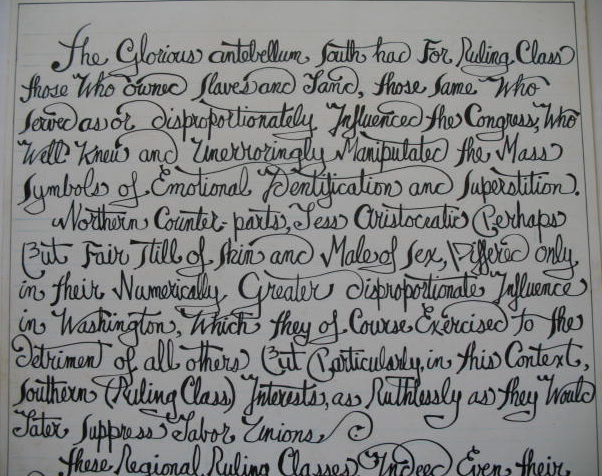 The Glorious antebellum South had For Ruling Class
those Who owned Slaves and Land, those same Who
Served as or disproportionately Influenced the Congress, Who
Well Knew and Unerroringly Manipulated the Mass
Symbols of Emotional Identification and Superstition.
Northern Counter-parts, Less Aristocratic Perhaps
But Fair Still of Skin and Male of Sex, Differed only
in their Numerically Greater disproportionate Influence
in Washington, Which they of Course Exercised to the
Detriment of all others But Particularly, in this Context,
Southern (Ruling Class) Interests, as Ruthlessly as they Would
Later Suppress Labor Unions.
These Regional Ruling Classes Indeed Even their